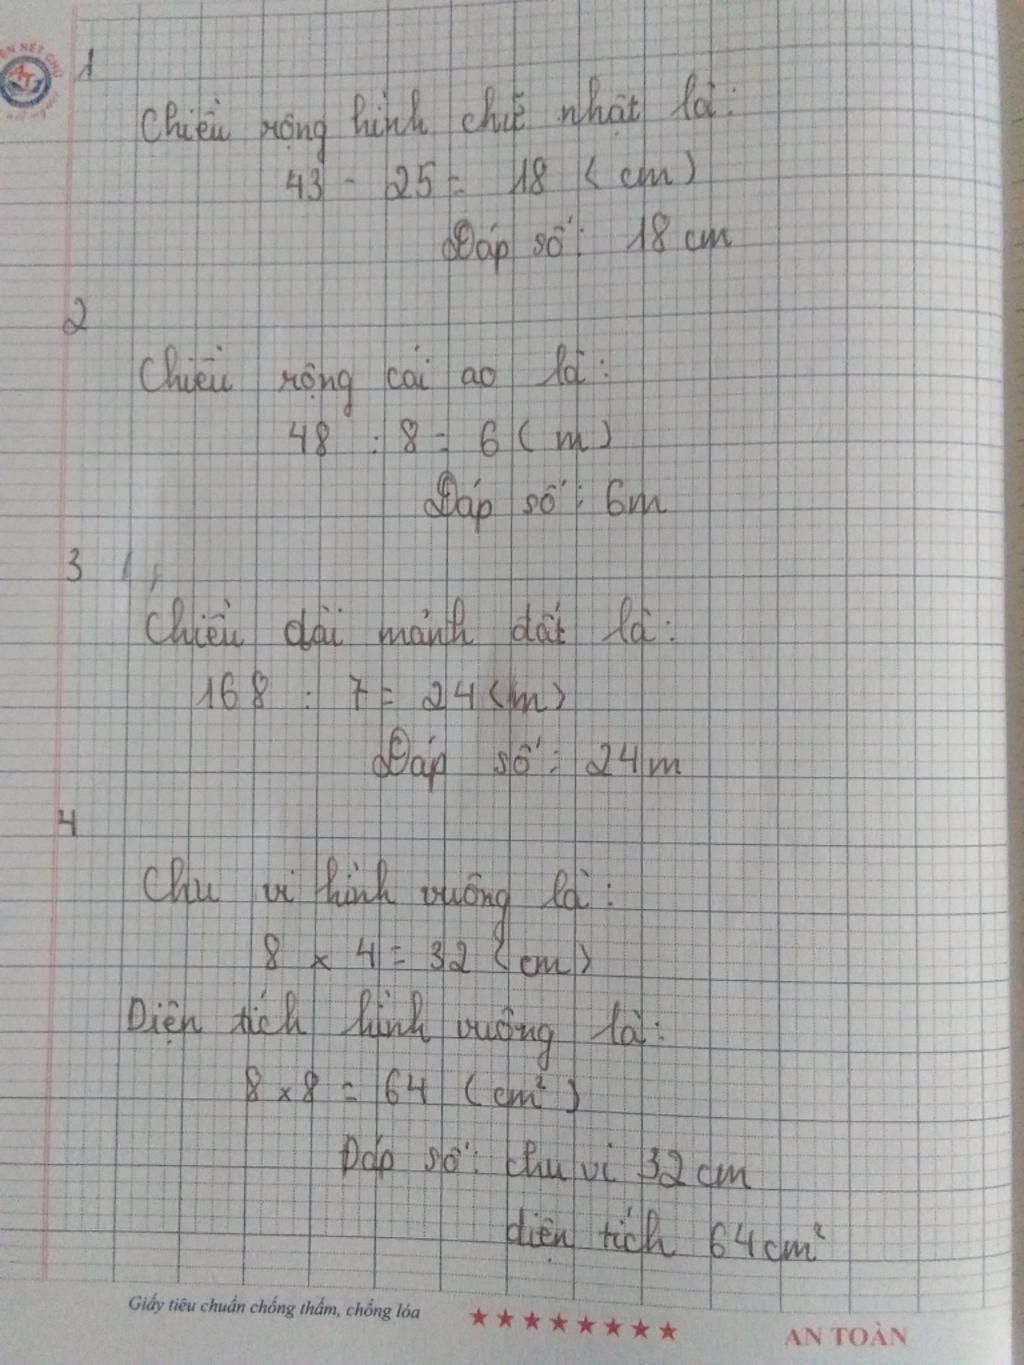 1
Chiều rộng hình chữ nhật là:
43 - 25 = 18 (cm)
Đáp số: 18 cm
2
Chiều rộng cái ao là:
48 : 8 = 6 (m)
Đáp số: 6m
3
Chiều dài mảnh đất là:
168 : 7 = 24 (m)
Đáp số: 24m
4
Chu vi hình vuông là:
8 x 4 = 32 (cm)
Diện tích hình vuông là:
8 x 8 = 64 (cm²)
Đáp số: chu vi 32 cm
diện tích 64 cm²
Giấy tiêu chuẩn chống thấm, chống lóa
AN TOÀN